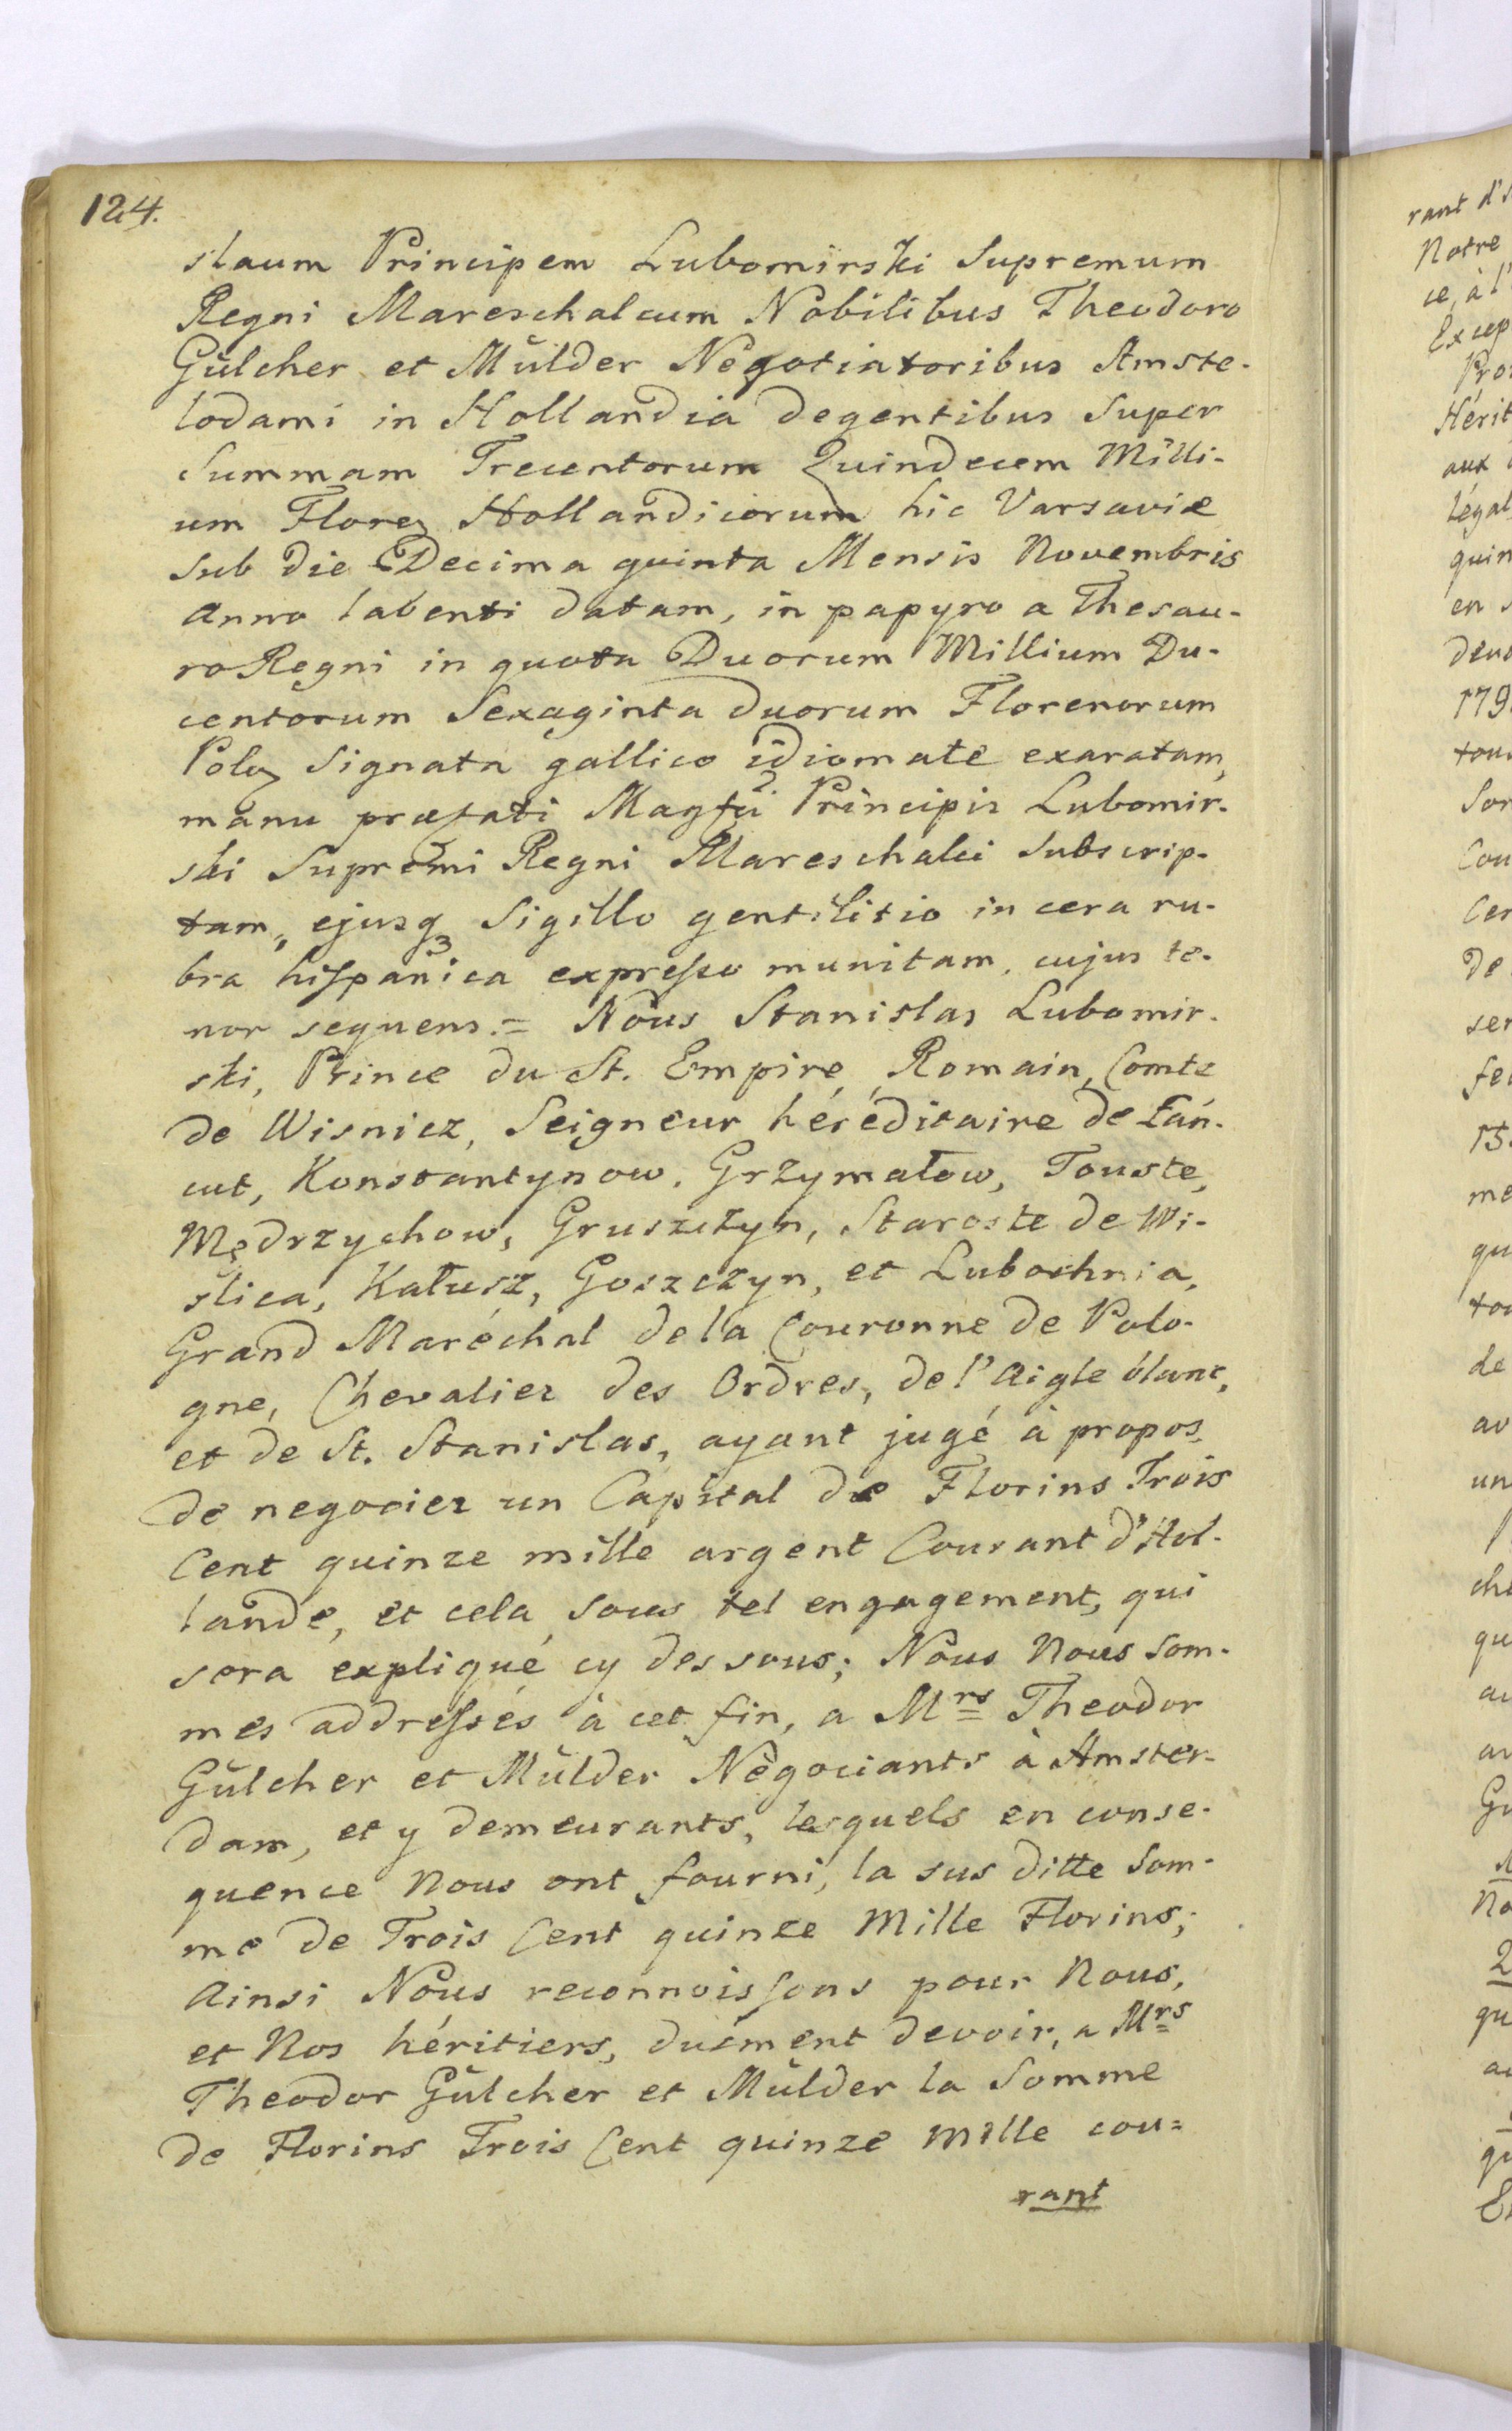 124.
slaum Principem Lubomirski Supremum
Regni Mareschalcum Nobilibus Theodoro
Gülcher et Mülder Negotiatoribus Amste-
lodami in Hollandia degentibus Super
Summam Trecentorum Quindecem Milli-
um Floreꝝ Hollandicorum hic Varsaviæ
sub die Decima quinta Mensis Novembris
anno labenti datam, in papyro a Thesau-
ro Regni in quota Duorum Millium Du-
centorum Sexaginta duorum Florenorum
Poloꝝ Signata gallico idiomate exaratam,
manu præfati Magfci Principis Lubomir-
ski Supremi Regni Mareschalci Subscrip-
tam, ejusqꝫ Sigillo gentilitio in cera ru-
bra hiſpanica expreſso munitam, cujus te-
nor sequens.= Nous Stanislas Lubomir-
ski, Prince du St. Empire, Romain, Comte
de Wisnicz, Seigneur héréditaire de Łań-
cut, Konstantynow, Grzymałow, Touste,
Mędrzychow, Gruszczyn, Staroste de Wi-
ślica, Kałusz, Goszczyn, et Lubochnia,
Grand Maréchal de la Couronne de Polo-
gne, Chevalier des Ordres, de l'Aigle blanc,
et de St. Stanislas, ayant jugé à propos
de negocier un Capital de Florins Trois
Cent quinze mille argent Courant d'Hol-
lande, et cela sous tel engagement, qui
sera expliqué cy dessous; Nous Nous som-
mes addreſsés à cet fin, a Mrs Theodor
Gülcher et Mülder Nègociants à Amster-
dam, et y demeurants, lesquels en conse-
quence Nous ont fourni, la sus ditte Som-
me de Trois Cent quinze Mille Florins;
Ainsi Nous reconnoisſons pour Nous,
et Nos héritiers, duëment devoir, a Mrs
Theodor Gülcher et Mülder la Somme
de Florins Trois Cent quinze mille cou=
rant
rant d's
Notre
ce, à l'
Excep
Pro
Hérit
aux
légal
quin
en s
deux
179
tou
Sor
Cou
Cer
De
ser
fe
15
me
qu
tou
de
av
un
che
qu
au
au
Gu
No
2
qu
au
qu